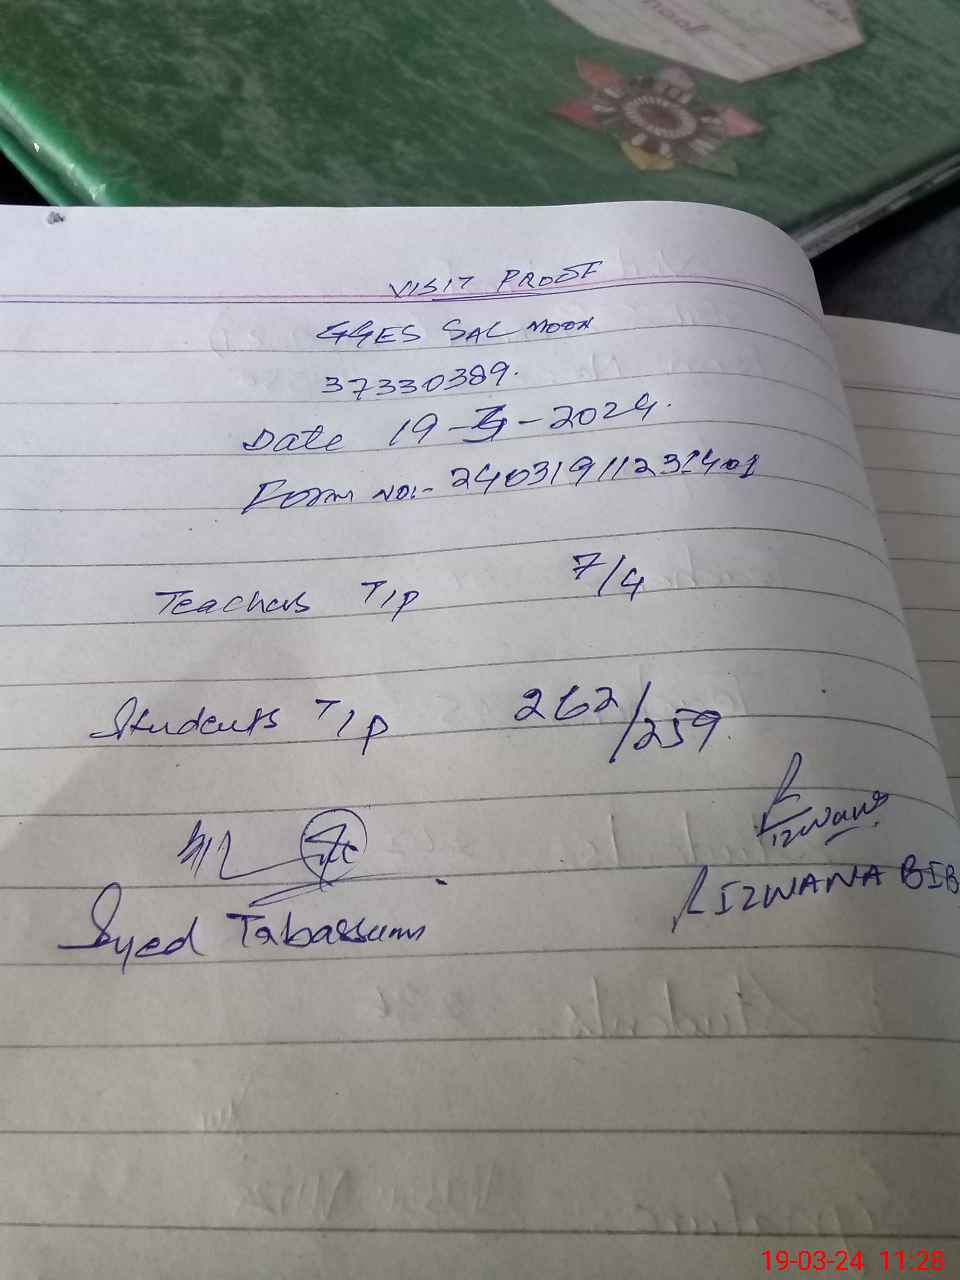 VISIT PROOF
GGES SAL MOON
37330389.
Date 19-3-2024.
Form No:- 240319112312401
Teachers T/P 7/4
Students T/P 262/259
Rizwana
Syed Tabassum
RIZWANA BIB
19-03-24 11:28